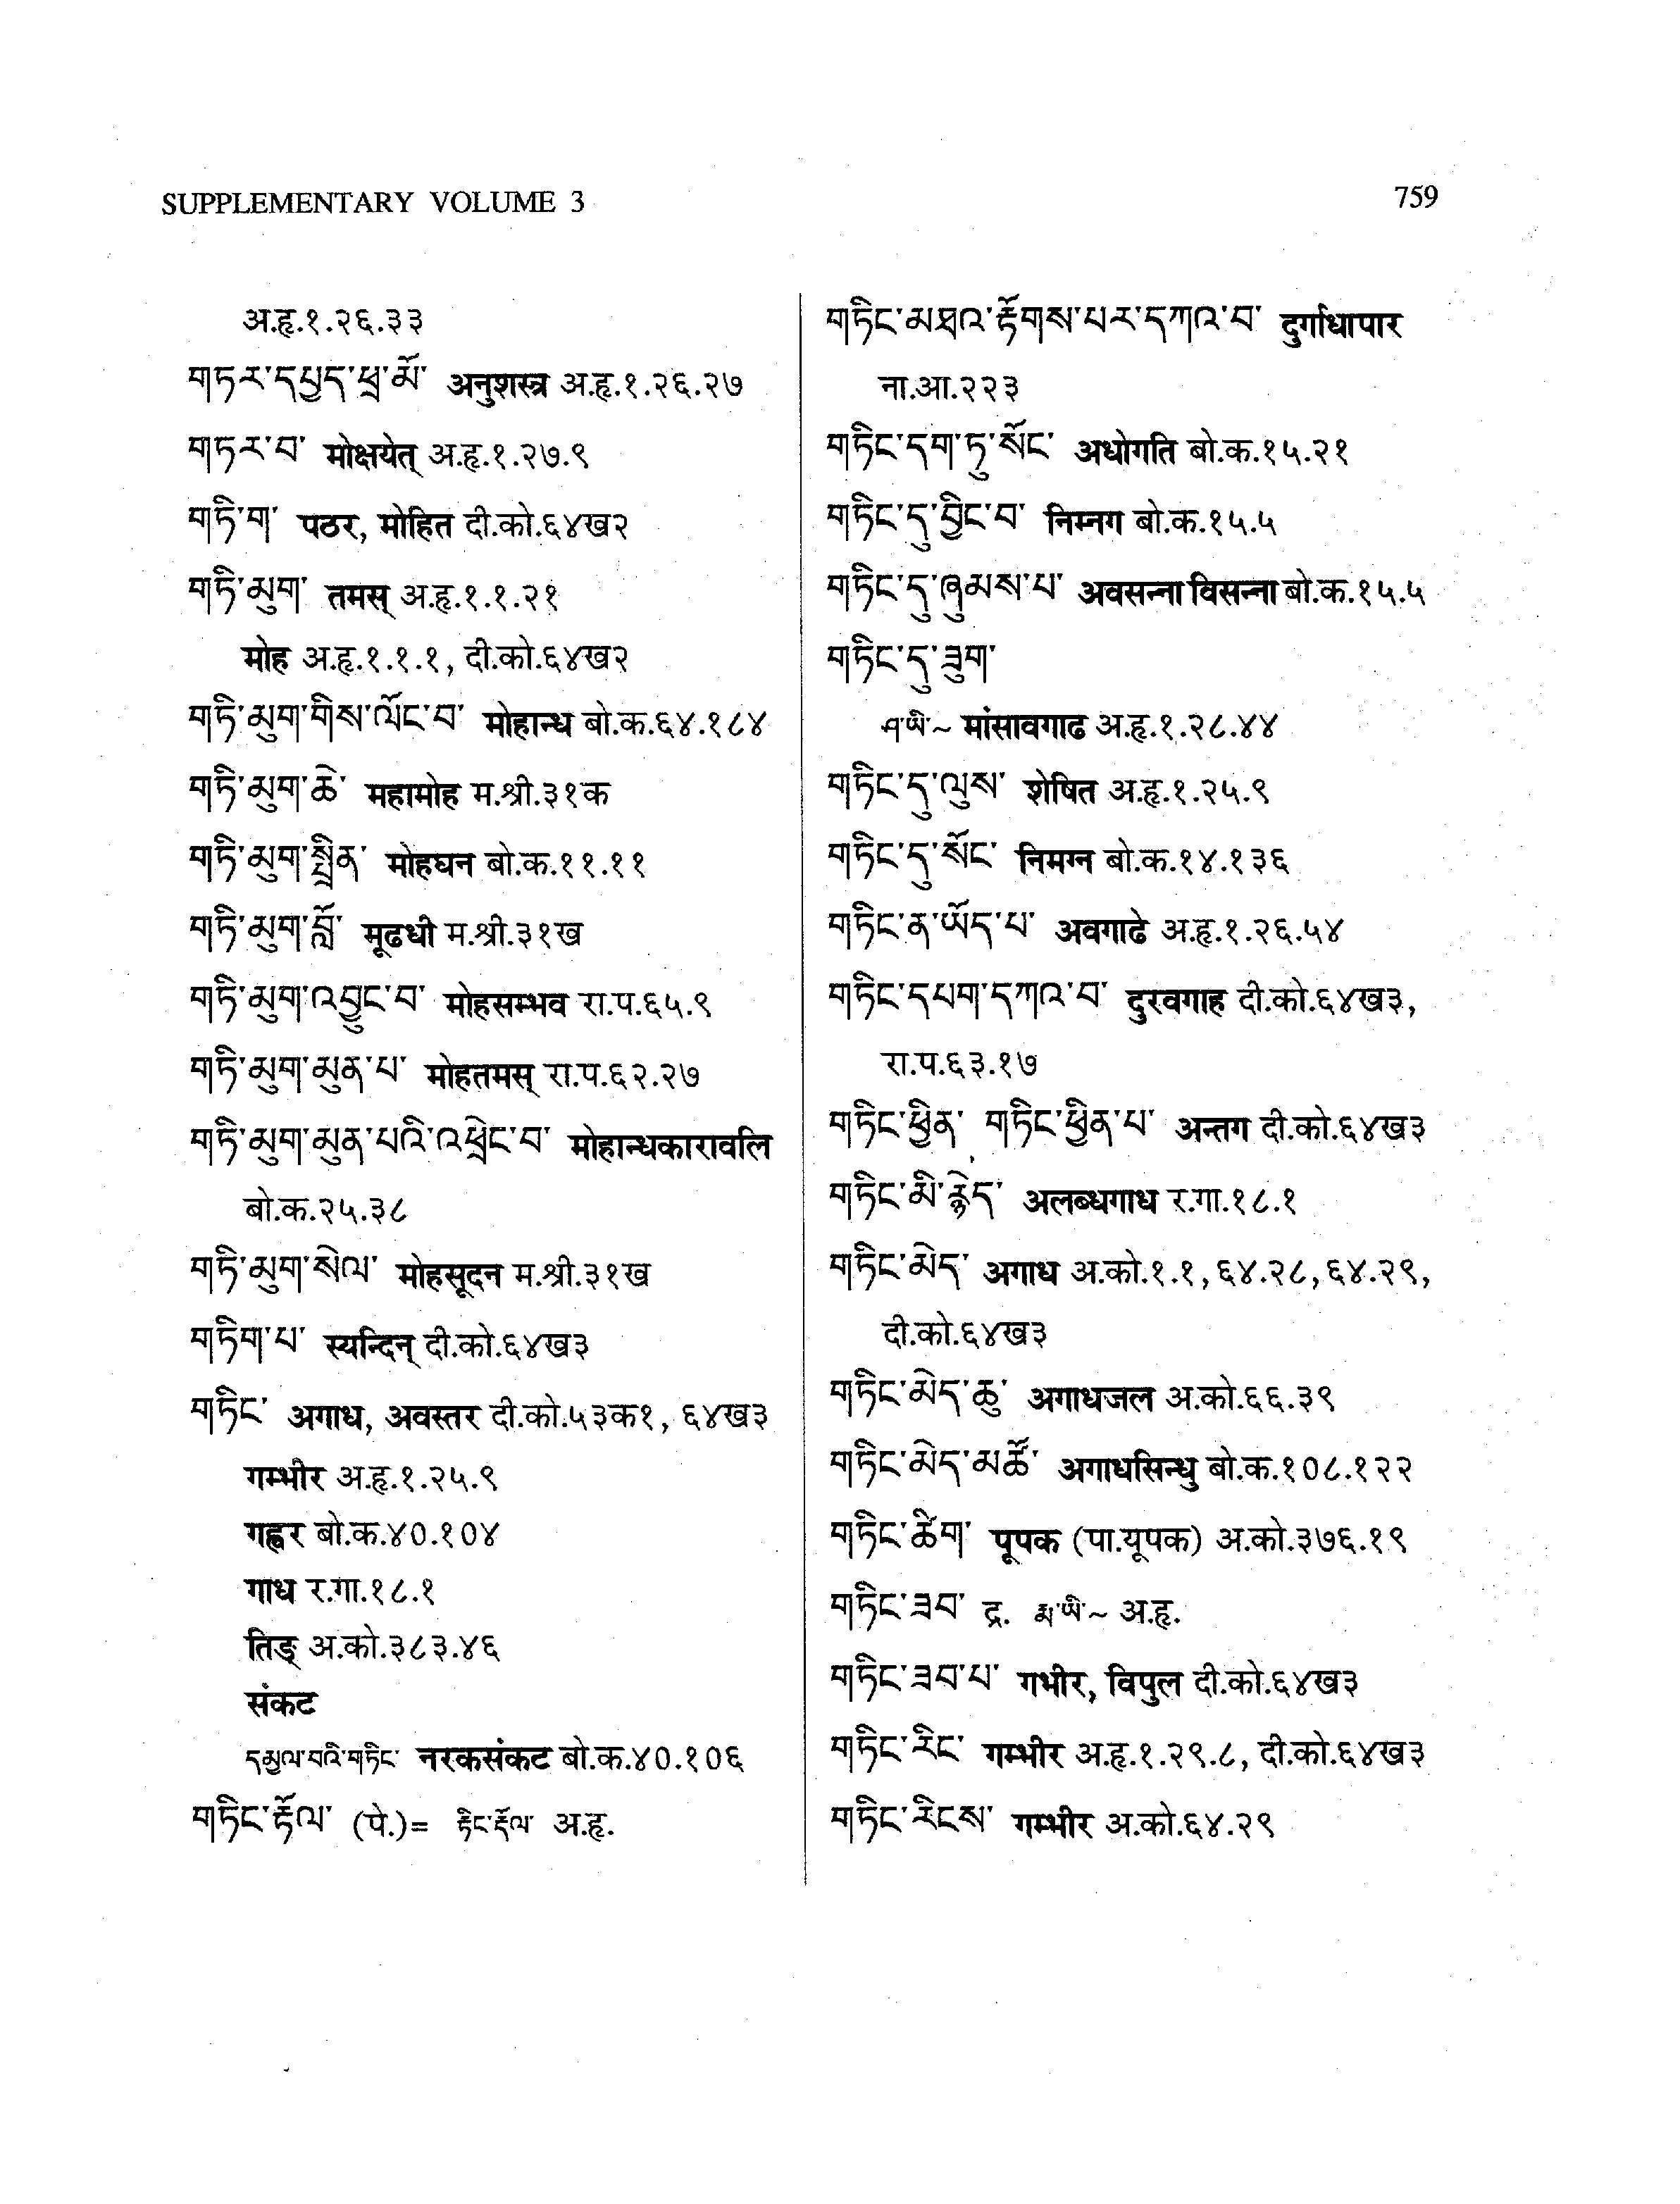 SUPPLEMENTARY VOLUME 3
759
अ.हृ.१.२६.३३
གཏར་དཔྱད་ཕྲ་མོ་ अनुशस्त्र अ.हृ.१.२६.२७
གཏར་བ་ मोक्षयेत् अ.हृ.१.२७.९
གཏི་ག་ पठर, मोहित दी.को.६४ख२
གཏི་མུག་ तमस् अ.हृ.१.१.२१
मोह अ.हृ.१.१.१, दी.को.६४ख२
གཏི་མུག་གིས་ལོང་བ་ मोहान्ध बो.क.६४.१८४
གཏི་མུག་ཆེ་ महामोह म.श्री.३१क
གཏི་མུག་སྤྲིན་ मोहघन बो.क.११.११
གཏི་མུག་བློ་ मूढधी म.श्री.३१ख
གཏི་མུག་འབྱུང་བ་ मोहसम्भव रा.प.६५.९
གཏི་མུག་མུན་པ་ मोहतमस् रा.प.६२.२७
གཏི་མུག་མུན་པའི་འཕྲེང་བ་ मोहान्धकारावलि
बो.क.२५.३८
གཏི་མུག་སེལ་ मोहसूदन म.श्री.३१ख
གཏིག་པ་ स्यन्दिन् दी.को.६४ख३
གཏིང་ अगाध, अवस्तर दी.को.५३क१, ६४ख३
गम्भीर अ.हृ.१.२५.९
गह्वर बो.क.४०.१०४
गाध र.गा.१८.१
तिङ् अ.को.३८३.४६
संकट
དམྱལ་བའི་གཏིང་ नरकसंकट बो.क.४०.१०६
གཏིང་རྟོལ་ (पे.)= རྟིང་རྡོལ་ अ.हृ.
གཏིང་མཐའ་རྟོགས་པར་དཀའ་བ་ दुर्गाधापार
ना.आ.२२३
གཏིང་དག་ཏུ་སོང་ अधोगति बो.क.१५.२१
གཏིང་དུ་བྱིང་བ་ निम्नग बो.क.१५.५
གཏིང་དུ་ཞུམས་པ་ अवसन्ना विसन्ना बो.क.१५.५
གཏིང་དུ་ཟུག་
ཤ་ཡི་~ मांसावगाढ अ.हृ.१.२८.४४
གཏིང་དུ་ལུས་ शेषित अ.हृ.१.२५.९
གཏིང་དུ་སོང་ निमग्न बो.क.१४.१३६
གཏིང་ན་ཡོད་པ་ अवगाढे अ.हृ.१.२६.५४
གཏིང་དཔག་དཀའ་བ་ दुरवगाह दी.को.६४ख३,
रा.प.६३.१७
གཏིང་ཕྱིན་ གཏིང་ཕྱིན་པ་ अन्तग दी.को.६४ख३
གཏིང་མི་རྙེད་ अलब्धगाध र.गा.१८.१
གཏིང་མེད་ अगाध अ.को.१.१, ६४.२८, ६४.२९,
दी.को.६४ख३
གཏིང་མེད་ཆུ་ अगाधजल अ.को.६६.३९
གཏིང་མེད་མཚོ་ अगाधसिन्धु बो.क.१०८.१२२
གཏིང་ཚིག་ पूपक (पा.यूपक) अ.को.३७६.१९
གཏིང་ཟབ་ द्र. རྨ་ཡི་~ अ.हृ.
གཏིང་ཟབ་པ་ गभीर, विपुल दी.को.६४ख३
གཏིང་རིང་ गम्भीर अ.हृ.१.२९.८, दी.को.६४ख३
གཏིང་རིངས་ गम्भीर अ.को.६४.२९